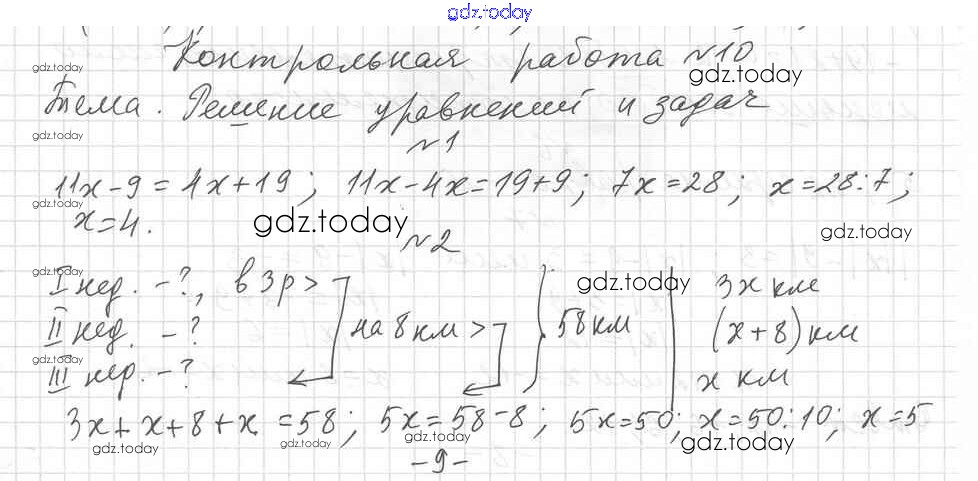 gdz.today
Контрольная работа №10
gdz.today gdz.today
Тема. Решение уравнений и задач
gdz.today
№1
11x-9=4x+19; 11x-4x=19+9; 7x=28; x=28:7;
gdz.today
x=4.
gdz.today gdz.today
№2
gdz.today gdz.today
I нед. -?, в 3р> 3x км
II нед. -? на 8 км> 58 км (x+8) км
gdz.today
III нед. -? x км
3x+x+8+x=58; 5x=58-8; 5x=50; x=50:10; x=5
gdz.today gdz.today gdz.today
-9-